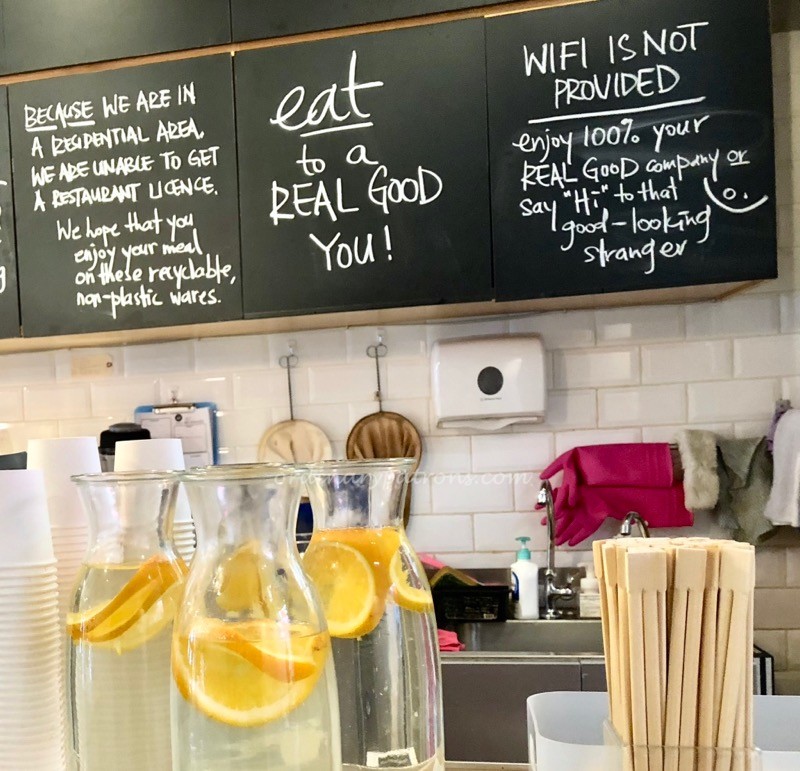 BECAUSE WE ARE IN
A RESIDENTIAL AREA,
WE ARE UNABLE TO GET
A RESTAURANT LICENCE.
We hope that you
enjoy your meal
on these recyclable,
non-plastic wares.
eat
to a
REAL GOOD
YOU!
WIFI IS NOT
PROVIDED
enjoy 100% your
REAL GOOD company or
say "Hi" to that
good-looking
stranger